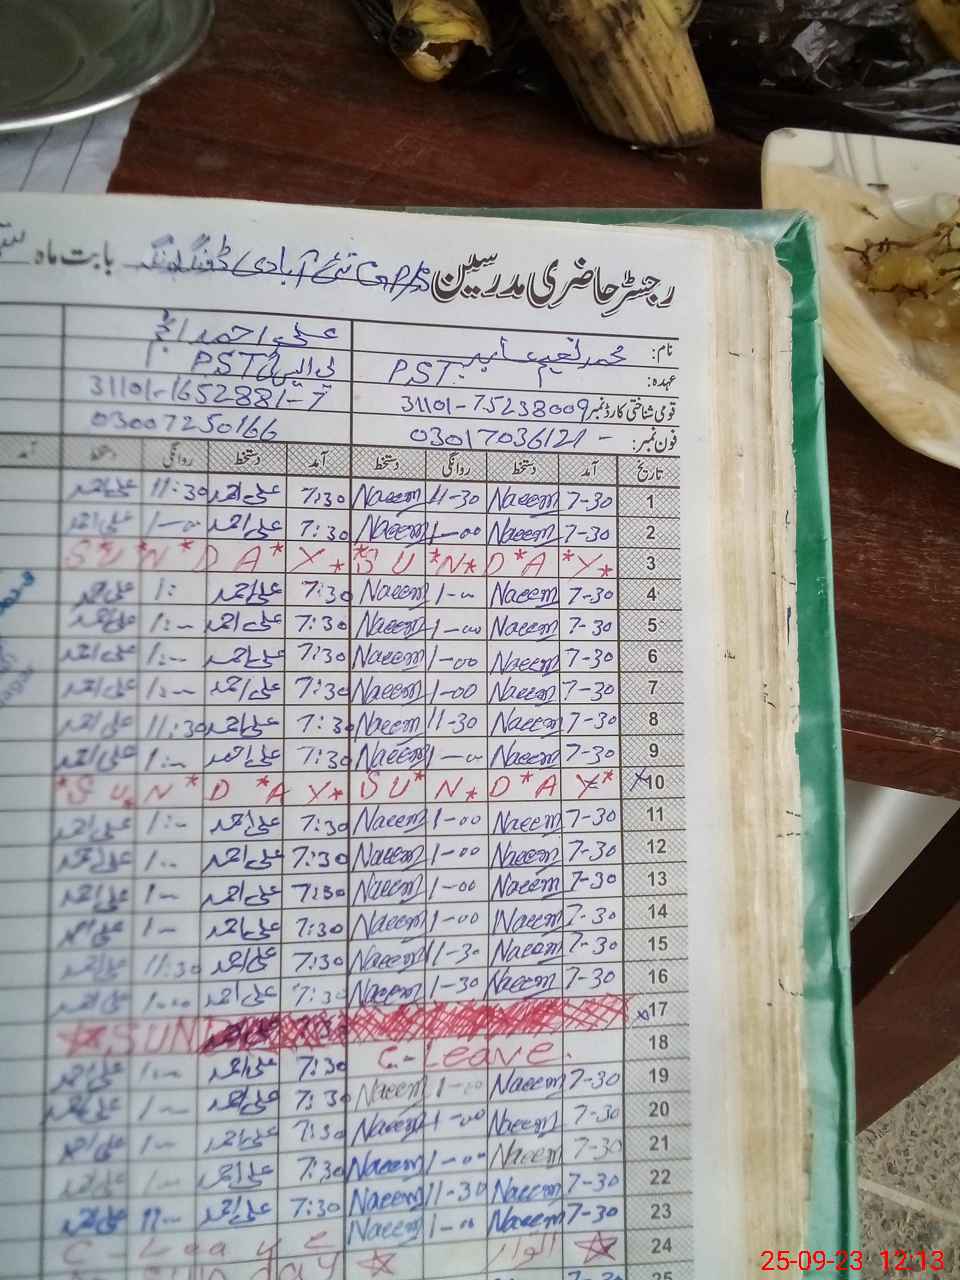 رجسٹر حاضری مدرسین GPS بابت ماہ
نام: محمد نعیم علی احمد
عہدہ: PST PST
قومی شناختی کارڈ نمبر 31101-75238009 31101-1652881-7
فون نمبر: 03017036121 - 03007250166
تاریخ آمد دستخط روانگی دستخط آمد دستخط روانگی دستخط آمد
1 7-30 Naeem 11-30 Naeem 7:30 علی احمد 11:30 علی احمد
2 7-30 Naeem 1-00 Naeem 7:30 علی احمد 1-00 علی احمد
3 S U * N * D A * Y * * S U * N * D * A * Y *
4 7-30 Naeem 1-00 Naeem 7:30 علی احمد 1: علی احمد
5 7-30 Naeem 1-00 Naeem 7:30 علی احمد 1:- علی احمد
6 7-30 Naeem 1-00 Naeem 7:30 علی احمد 1:- علی احمد
7 7-30 Naeem 1-00 Naeem 7:30 علی احمد 1:- علی احمد
8 7-30 Naeem 11-30 Naeem 7:30 علی احمد 11:30 علی احمد
9 7-30 Naeem 1-00 Naeem 7:30 علی احمد 1:- علی احمد
10 * S U * N * D * A Y * S U * N * D * A Y *
11 7-30 Naeem 1-00 Naeem 7:30 علی احمد 1:- علی احمد
12 7-30 Naeem 1-00 Naeem 7:30 علی احمد 1-- علی احمد
13 7-30 Naeem 1-00 Naeem 7:30 علی احمد 1-- علی احمد
14 7-30 Naeem 1-00 Naeem 7:30 علی احمد 1-- علی احمد
15 7-30 Naeem 11-30 Naeem 7:30 علی احمد 11:30 علی احمد
16 7-30 Naeem 1-30 Naeem 7:30 علی احمد 1-00 علی احمد
17 SUN
18 C-Leave. 7:30 علی احمد 1-- علی احمد
19 7-30 Naeem 1-00 Naeem 7:30 علی احمد 1-- علی احمد
20 7-30 Naeem 1-00 Naeem 7:30 علی احمد 1-- علی احمد
21 7-30 Naeem 1-00 Naeem 7:30 علی احمد 1-- علی احمد
22 7-30 Naeem 11-30 Naeem 7:30 علی احمد 11-- علی احمد
23 7-30 Naeem 1-00 Naeem C-Leave
24 اتوار
25
25-09-23 12:13